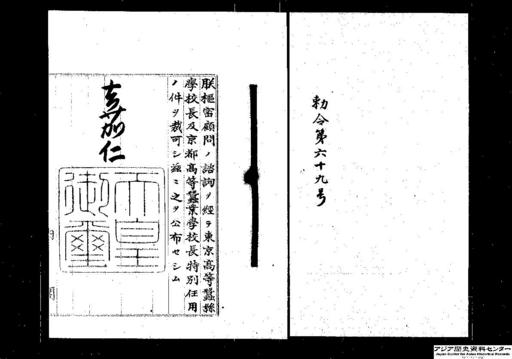 勅令第六十九号
朕枢密顧問ノ諮詢ヲ経テ東京高等蚕糸
学校長及京都高等蚕業学校長特別任用
ノ件ヲ裁可シ茲ニ之ヲ公布セシム
嘉仁
天皇
御璽
内閣
アジア歴史資料センター
Japan Center for Asian Historical Records